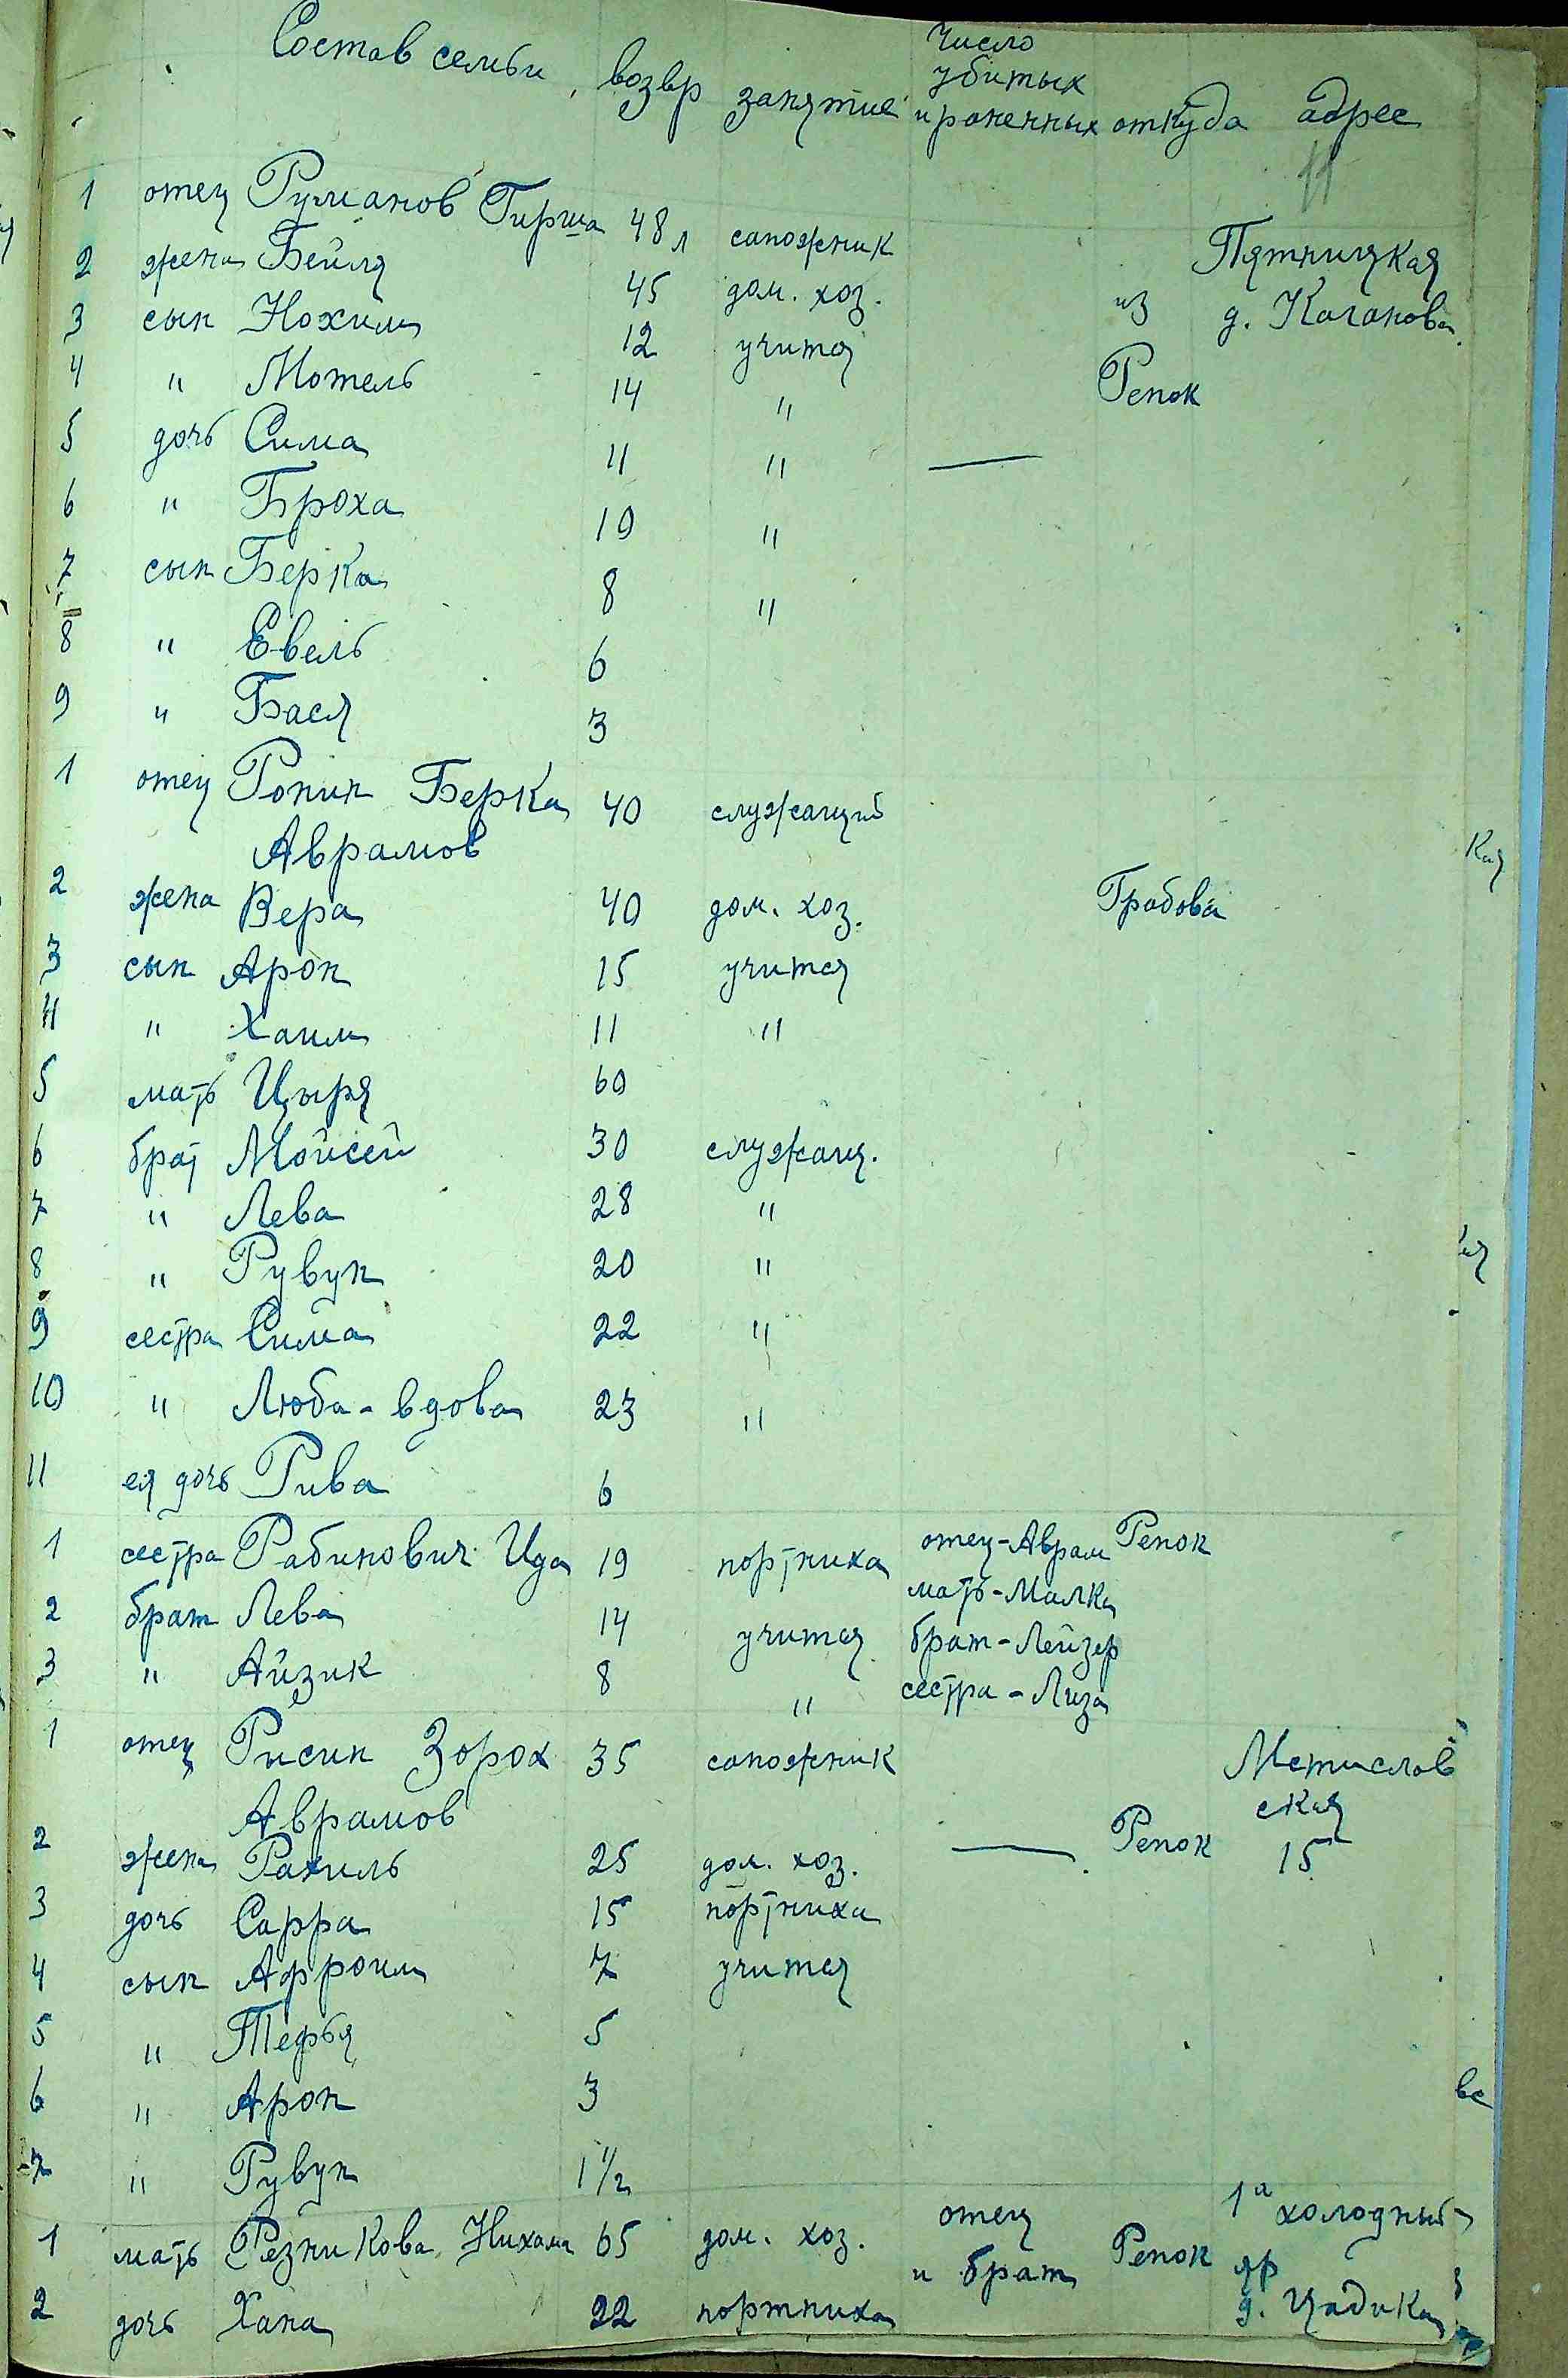 Состав семьи возвр занятие число убитых и раненных откуда адрес
11
1 отец Румянов Гирша 48 л сапожник
2 жена Бейля 45 дом. хоз. Пятницкая
3 сын Нохим 12 учится из д. Каганова
4 " Мотель 14 " Репок
5 дочь Сима 11 " —
6 " Броха 10 "
7 сын Берка 8 "
8 " Евель 6
9 " Бася 3
1 отец Ронин Берка 40 служащий
Аврамов
2 жена Вера 40 дом. хоз. Грабова
3 сын Арон 15 учится
4 " Хаим 11 "
5 мать Цыря 60
6 брат Мойсей 30 служащ.
7 " Лева 28 "
8 " Рувун 20 "
9 сестра Сима 22 "
10 " Люба - вдова 23 "
11 ея дочь Рива 6
1 сестра Рабинович Ида 19 портниха отец - Аврам Репок
мать - Малка
2 брат Лева 14 учится брат - Лейзер
3 " Айзик 8 " сестра - Лиза
1 отец Рисин Зорох 35 сапожник Мстислав
Аврамов ская
2 жена Рахиль 25 дом. хоз. — Репок 15
3 дочь Сарра 15 портниха
4 сын Афроим 7 учится
5 " Тефья 5
6 " Арон 3
7 " Рувун 1 1/2
1 мать Резникова Нихама 65 дом. хоз. отец и брат Репок 1й холодный яр
2 дочь Хана 22 портниха д. Цадика